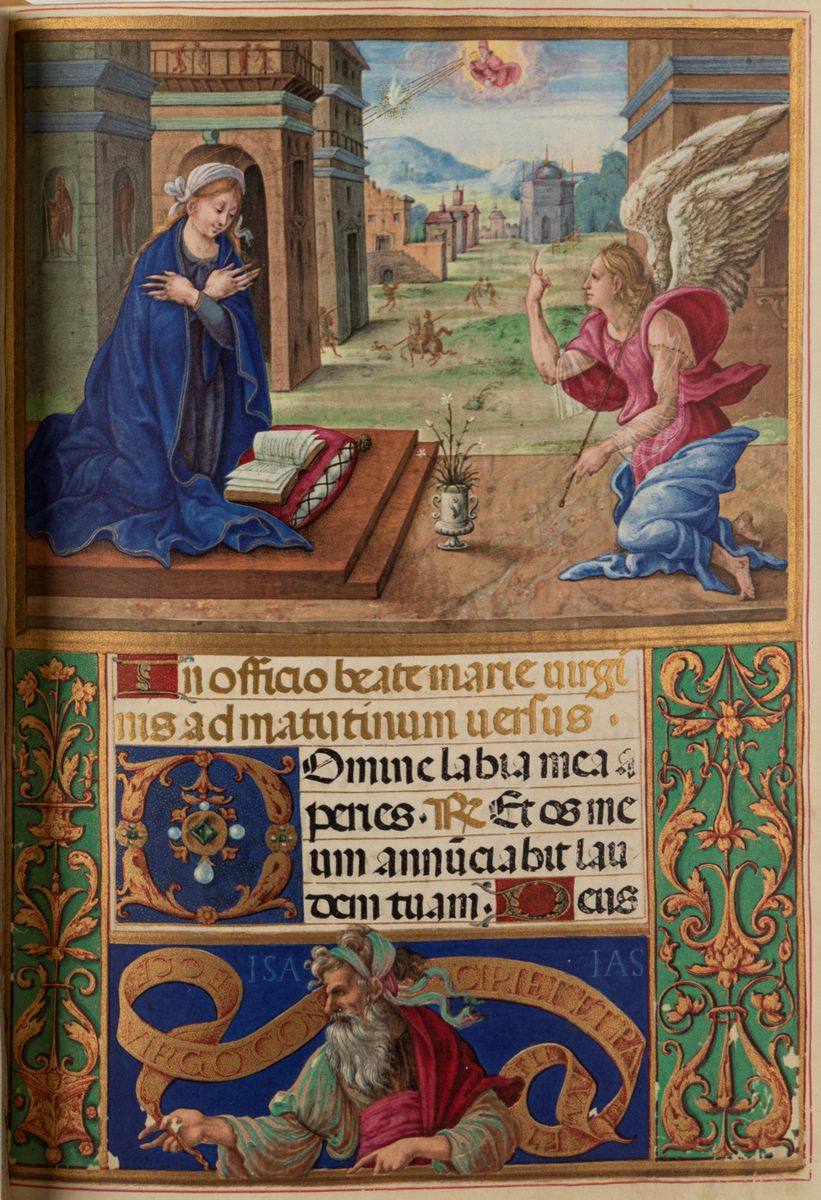 In officio beate marie uirgi
nis ad matutinum uersus ·
Domine labia mea a
peries · R Et os me
um annūciabit lau
dem tuam. Deus
ISA IAS
ECCE
VIRGO CON CIPIET ET PA